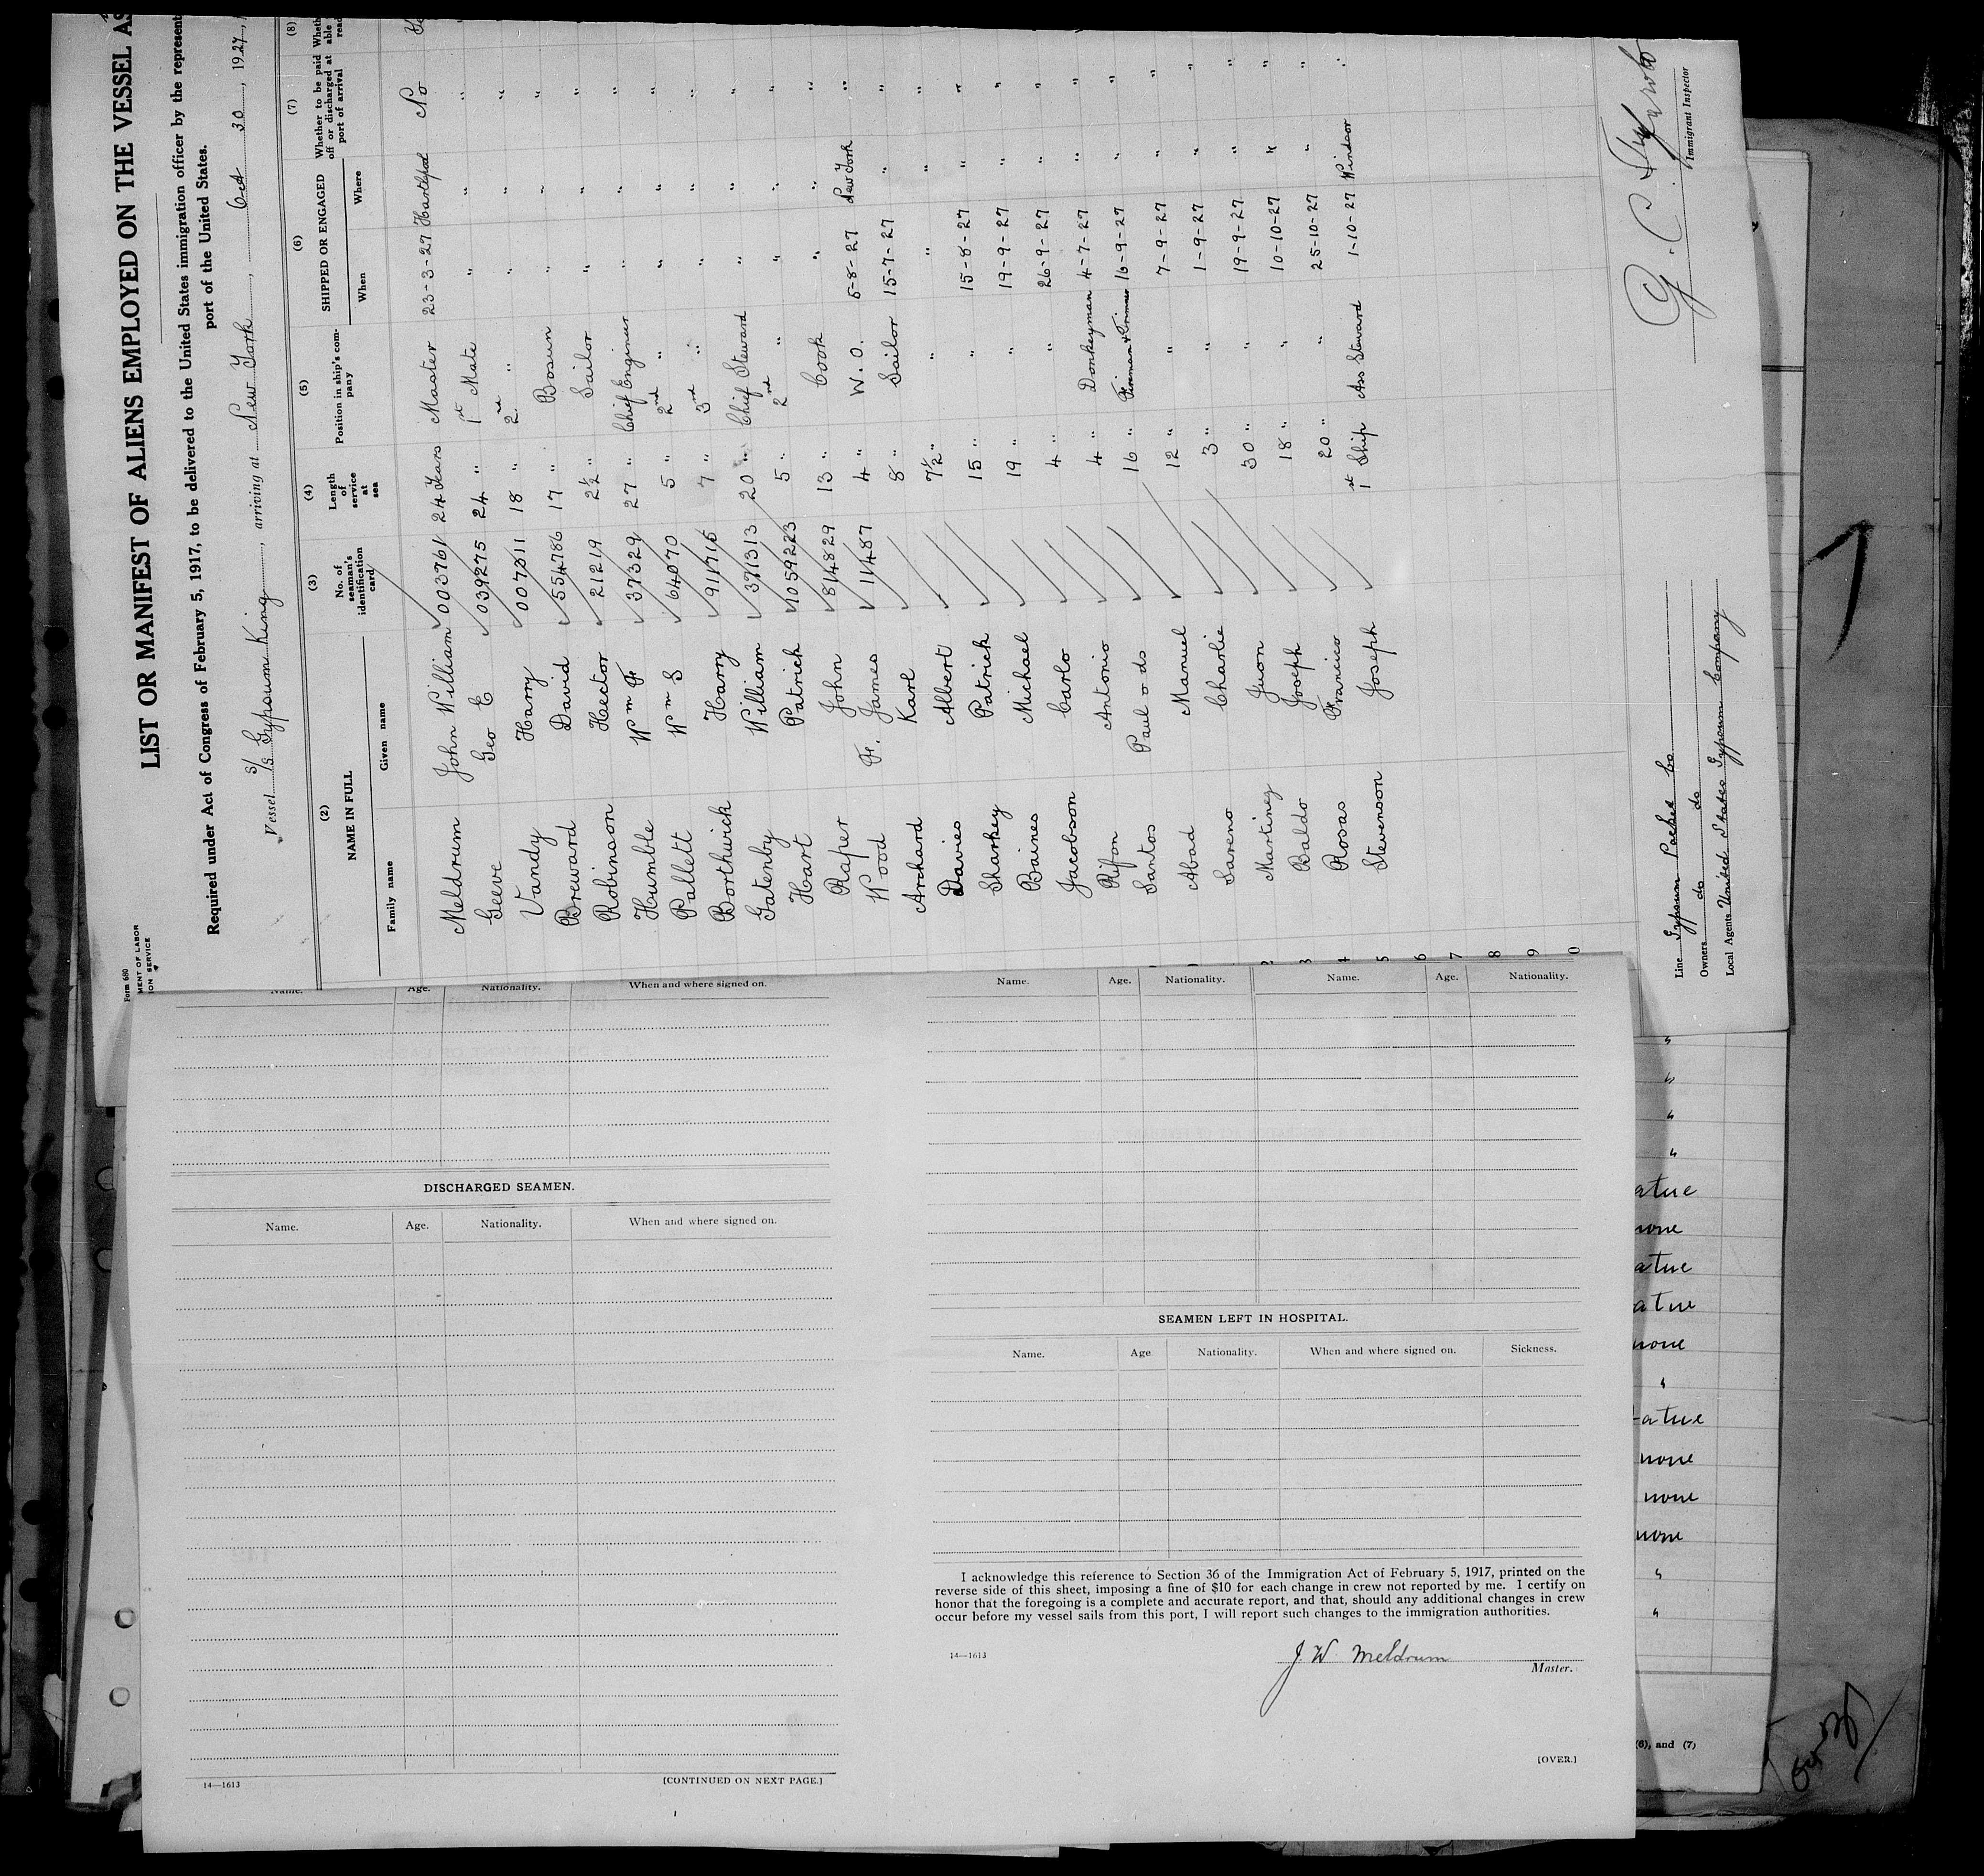 Form 680
MENT OF LABOR
ION SERVICE
LIST OR MANIFEST OF ALIENS EMPLOYED ON THE VESSEL AS
Required under Act of Congress of February 5, 1917, to be delivered to the United States immigration officer by the represent
port of the United States.
Vessel S/s Gypsum King, arriving at New York, Oct 30, 1927,
(2) (3) (4) (5) (6) (7) (8)
NAME IN FULL No. of seaman's identification card Length of service at sea Position in ship's company SHIPPED OR ENGAGED Whether to be paid off or discharged at port of arrival Wheth able read
Family name Given name When Where
Meldrum John William 003761 24 Years Master 23-3-27 Hartlepool No
Geeve Geo E 039275 24 " 1st Mate " " "
Vandy Harry 18 " 2nd " " " "
Breward David 554786 17 " Bosun " " "
Robinson Hector 21219 2½ " Sailor " " "
Humble Wm F 37329 27 " Chief Engineer " " "
Pallett Wm S 64070 5 " 2nd " " " "
Borthwick Harry 911716 7 " 3rd " " " "
Gatenby William 371313 20 " Chief Steward " " "
Hart Patrick 1059223 5 " 2nd " " " "
Raper John 814829 13 " Cook " " "
Wood F. James 11487 4 " W. O. 5-8-27 New York "
Archard Karl 8 " Sailor 15-7-27 " "
Davies Albert 7½ " " " " "
Sharkey Patrick 15 " " 15-8-27 " "
Baines Michael 19 " " 19-9-27 " "
Jacobson Carlo 4 " " 26-9-27 " "
Rifon Antonio 4 " Donkeyman 4-7-27 " "
Santos Paul o ds 16 " Fireman & Trimmer 16-9-27 " "
Abad Manuel 12 " " 7-9-27 " "
Sareno Charlie 3 " " 1-9-27 " "
Martinez Juon 30 " " 19-9-27 " "
Baldo Joseph 18 " " 10-10-27 " "
Rosas Francico 20 " " 25-10-27 " "
Stevenson Joseph 1st Ship Ass Steward 1-10-27 Windsor "
Line Gypsum Packet Co
Owners do do
Local Agents United States Gypsum Company
Immigrant Inspector
Name. Age. Nationality. When and where signed on.
DISCHARGED SEAMEN.
Name. Age. Nationality. When and where signed on.
14—1613 [CONTINUED ON NEXT PAGE.]
Name. Age. Nationality. Name. Age. Nationality.
SEAMEN LEFT IN HOSPITAL.
Name. Age Nationality. When and where signed on. Sickness.
I acknowledge this reference to Section 36 of the Immigration Act of February 5, 1917, printed on the
reverse side of this sheet, imposing a fine of $10 for each change in crew not reported by me. I certify on
honor that the foregoing is a complete and accurate report, and that, should any additional changes in crew
occur before my vessel sails from this port, I will report such changes to the immigration authorities.
14—1613
J. W Meldrum
Master.
[OVER.]
"
"
"
"
atue
none
atue
atue
none
"
atue
none
none
none
"
"
(6), and (7)